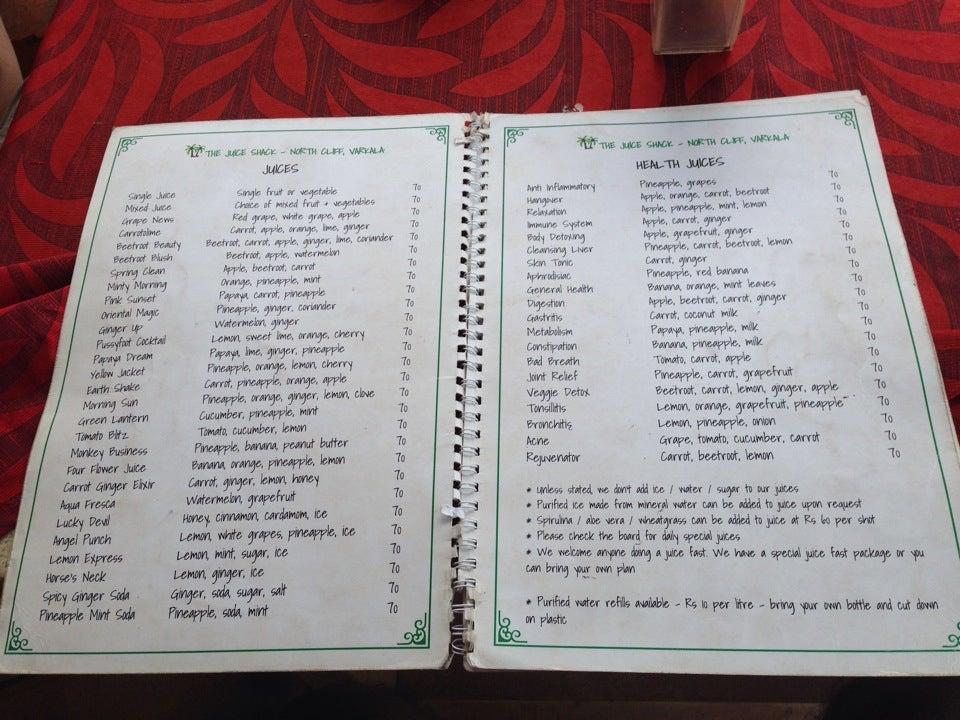 THE JUICE SHACK - NORTH CLIFF, VARKALA
JUICES
Single Juice Single fruit or vegetable 70
Mixed Juice Choice of mixed fruit + vegetables 70
Grape News Red grape, white grape, apple 70
Carrotolime Carrot, apple, orange, lime, ginger 70
Beetroot Beauty Beetroot, carrot, apple, ginger, lime, coriander 70
Beetroot Blush Beetroot, apple, watermelon 70
Spring Clean Apple, beetroot, carrot 70
Minty Morning Orange, pineapple, mint 70
Pink Sunset Papaya, carrot, pineapple 70
Oriental Magic Pineapple, ginger, coriander 70
Ginger Up Watermelon, ginger 70
Pussyfoot Cocktail Lemon, sweet lime, orange, cherry 70
Papaya Dream Papaya, lime, ginger, pineapple 70
Yellow Jacket Pineapple, orange, lemon, cherry 70
Earth Shake Carrot, pineapple, orange, apple 70
Morning Sun Pineapple, orange, ginger, lemon, clove 70
Green Lantern Cucumber, pineapple, mint 70
Tomato Blitz Tomato, cucumber, lemon 70
Monkey Business Pineapple, banana, peanut butter 70
Four Flower Juice Banana, orange, pineapple, lemon 70
Carrot Ginger Elixir Carrot, ginger, lemon, honey 70
Aqua Fresca Watermelon, grapefruit 70
Lucky Devil Honey, cinnamon, cardamom, ice 70
Angel Punch Lemon, white grapes, pineapple, ice 70
Lemon Express Lemon, mint, sugar, ice 70
Horse's Neck Lemon, ginger, ice 70
Spicy Ginger Soda Ginger, soda, sugar, salt 70
Pineapple Mint Soda Pineapple, soda, mint 70
THE JUICE SHACK - NORTH CLIFF, VARKALA
HEALTH JUICES
Anti Inflammatory Pineapple, grapes 70
Hangover Apple, orange, carrot, beetroot 70
Relaxation Apple, pineapple, mint, lemon 70
Immune System Apple, carrot, ginger 70
Body Detoxing Apple, grapefruit, ginger 70
Cleansing Liver Pineapple, carrot, beetroot, lemon 70
Skin Tonic Carrot, ginger 70
Aphrodisiac Pineapple, red banana 70
General Health Banana, orange, mint leaves 70
Digestion Apple, beetroot, carrot, ginger 70
Gastritis Carrot, coconut milk 70
Metabolism Papaya, pineapple, milk 70
Constipation Banana, pineapple, milk 70
Bad Breath Tomato, carrot, apple 70
Joint Relief Pineapple, carrot, grapefruit 70
Veggie Detox Beetroot, carrot, lemon, ginger, apple 70
Tonsillitis Lemon, orange, grapefruit, pineapple 70
Bronchitis Lemon, pineapple, onion 70
Acne Grape, tomato, cucumber, carrot 70
Rejuvenator Carrot, beetroot, lemon 70
* Unless stated, we don't add ice / water / sugar to our juices
* Purified ice made from mineral water can be added to juice upon request
* Spirulina / aloe vera / wheatgrass can be added to juice at Rs 60 per shot
* Please check the board for daily special juices
* We welcome anyone doing a juice fast. We have a special juice fast package or you
can bring your own plan
* Purified water refills available - Rs 10 per litre - bring your own bottle and cut down
on plastic